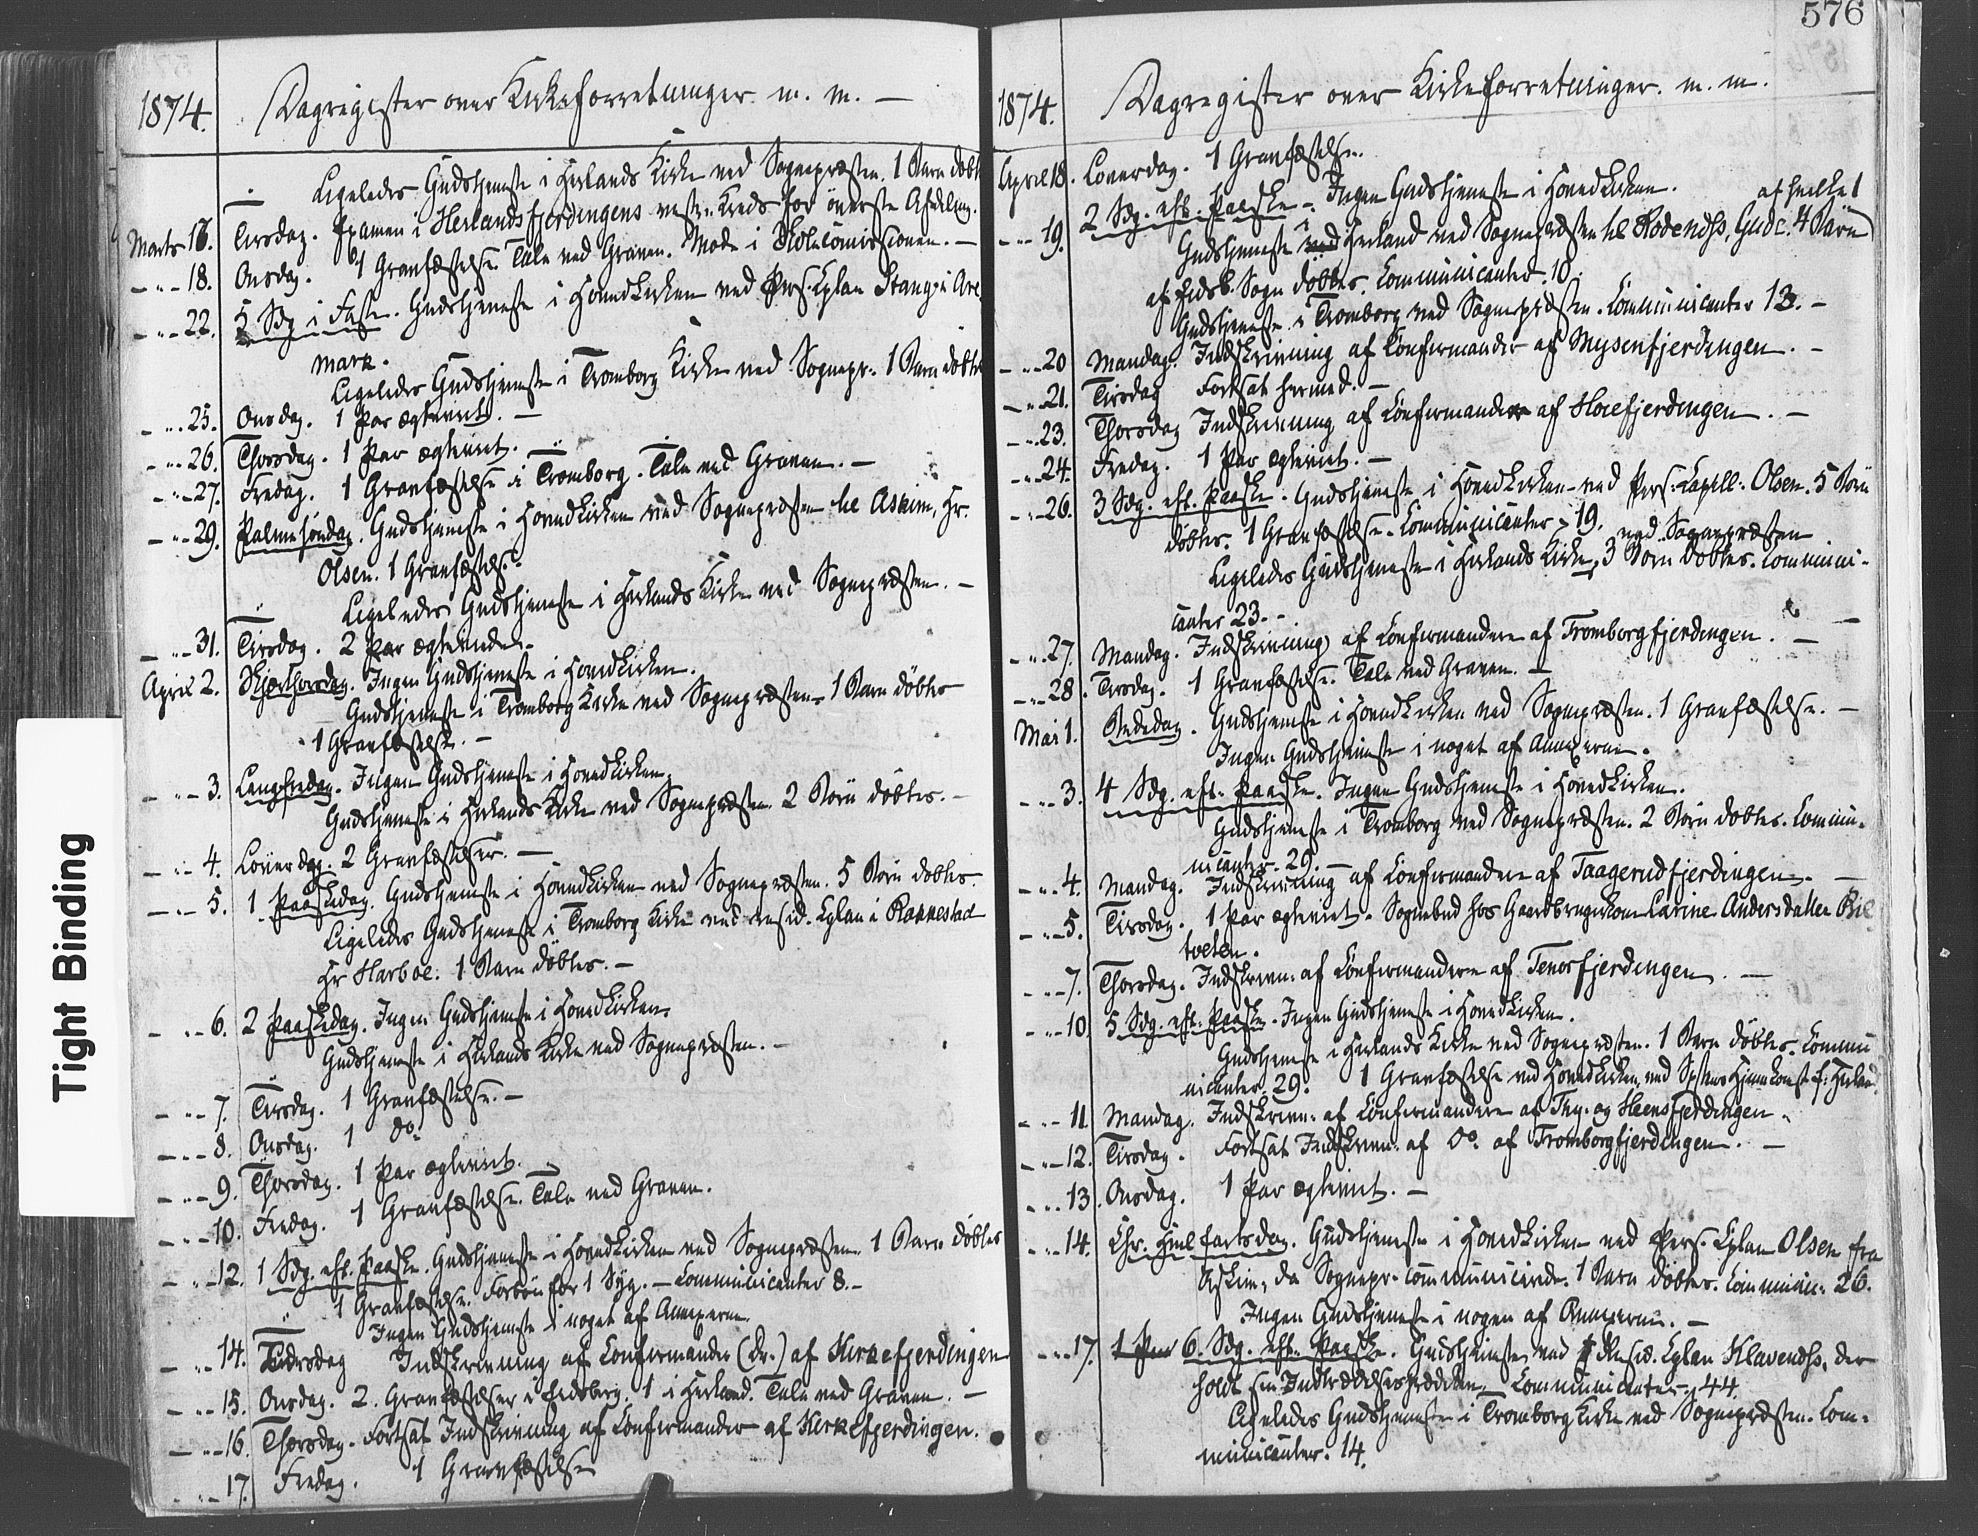 576
1874. Dagregister over Kirkeforretninger. m. m. –
Ligeledes Gudstjeneste i Herlands Kirke ved Sognepræsten. 1 Barn døbt
Marts 16. Tirsdag. Examen i Herlandsfjerdingens vestr. Kreds for øverste Afdeling.
– „ – 18. Onsdag. 1 Gravfæstelse. Tale ved Graven. Møde i Skolecomissionen. –
– „ – 22. 5 Sdg i Faste. Gudstjeneste i Hovedkirken ved Pers. Cplan Stang i Are-
mark.
Ligeledes Gudstjeneste i Tromborg Kirke ved Sognepr. 1 Barn døbtes
– „ – 25. Onsdag. 1 Par ægteviet. –
– „ – 26. Thorsdag. 1 Par ægteviet.
– „ – 27. Fredag. 1 Gravfæstelse i Tromborg. Tale ved Graven. –
– „ – 29. Palmesøndag. Gudstjeneste i Hovedkirken ved Sognepræsten til Askim, Hr.
Olsen. 1 Gravfæstelse.
Ligeledes Gudstjeneste i Herlands Kirke ved Sognepræsten. –
– „ – 31. Tirsdag. 2 Par ægteviede. –
April 2. Skjærthorsdag. Ingen Gudstjeneste i Hovedkirken.
Gudstjeneste i Tromborg Kirke ved Sognepræsten. 1 Barn døbtes
1 Gravfæstelse. –
– „ – 3. Langfredag. Ingen Gudstjeneste i Hovedkirken.
Gudstjeneste i Herlands Kirke ved Sognepræsten. 2 Børn døbtes. –
– „ – 4. Løverdag. 2 Gravfæstelser. –
– „ – 5. 1 Paaskedag. Gudstjeneste i Hovedkirken ved Sognepræsten. 5 Børn døbtes.
Ligeledes Gudstjeneste i Tromborg Kirke ved resid. Cplan i Rakkestad
Hr Harboe. 1 Barn døbtes. –
– „ – 6. 2 Paaskedag. Ingen Gudstjeneste i Hovedkirken.
Gudstjeneste i Herlands Kirke ved Sognepræsten. –
– „ – 7. Tirsdag. 1 Gravfæstelse. –
– „ – 8. Onsdag. 1 do.
– „ – 9. Thorsdag. 1 Par ægteviet.
– „ – 10. Fredag. 1 Gravfæstelse. Tale ved Graven.
– „ – 12. 1 Sdg. eft. Paaske. Gudstjeneste i Hovedkirken ved Sognepræsten. 1 Barn døbtes
1 Gravfæstelse. Forbøn for 1 Syg. – Communicanter 8. –
Ingen Gudstjeneste i noget af Annexerne.
– „ – 14. Tirsdag Indskrivning af Confirmander (Dr.) af Kirkefjerdingen
– „ – 15. Onsdag. 2 Gravfæstelser i Eidsberg. 1 i Herland. Tale ved Graven. –
– „ – 16. Thorsdag. Fortsat Indskrivning af Confirmander af Kirkefjerdingen.
– „ – 17. Fredag. 1 Gravfæstelse
1874. Dagregister over Kirkeforretninger. m. m.
April 18. Løverdag. 1 Gravfæstelse.
– „ – 19. 2 Sdg. eft. Paaske. Ingen Gudstjeneste i Hovedkirken. af hvilke 1
Gudstjeneste i Herland ved Sognepræsten til Rødenæs, Gude. 4 Børn
af Eidsb. Sogn døbtes. Communicanter 10.
Gudstjeneste i Tromborg ved Sognepræsten. Communicanter 13. –
– „ – 20 Mandag. Indskrivning af Confirmander af Mysenfjerdingen. –
– „ – 21. Tirsdag Fortsat hermed. –
– „ – 23. Thorsdag Indskrivning af Confirmander af Hærefjerdingen. –
– „ – 24. Fredag. 1 Par ægteviet. –
– „ – 26. 3 Sdg. eft. Paaske. Gudstjeneste i Hovedkirken ved Pers. Capell. Olsen. 5 Børn
døbtes. 1 Gravfæstelse. Communicanter 19. ved Sognepræsten
Ligeledes Gudstjeneste i Herlands Kirke, 3 Børn døbtes. Communi-
canter 23. –
– „ – 27. Mandag. Indskrivning af Confirmandere af Tromborgfjerdingen. –
– „ – 28. Tirsdag. 1 Gravfæstelse. Tale ved Graven. –
Mai 1. Bededag. Gudstjeneste i Hovedkirken ved Sognepræsten. 1 Gravfæstelse. –
Ingen Gudstjeneste i noget af Annexerne.
– „ – 3. 4 Sdg. eft. Paaske. Ingen Gudstjeneste i Hovedkirken.
Gudstjeneste i Tromborg ved Sognepræsten. 2 Børn døbtes. Commu-
nicanter 29. –
– „ – 4. Mandag. Indskrivning af Confirmandere af Taagerudfjerdingen. –
– „ – 5. Tirsdag. 1 Par ægteviet. Sognebud hos Gaardbrugerkone Larine Andersdatter Bil
toeten.
– „ – 7. Thorsdag. Indskrivn. af Confirmandere af Tenorfjerdingen. –
– „ – 10. 5 Sdg. eft. Paaske. Ingen Gudstjeneste i Hovedkirken.
Gudstjeneste i Herlands Kirke ved Sognepræsten. 1 Barn døbtes. Commu-
nicanter 29. 1 Gravfæstelse ved Hovedkirken, ved Hjemkomst f. Herland.
– „ – 11. Mandag. Indskrivn. af Confirmandere af Thy- og Heensfjerdingen.
– „ – 12. Tirsdag. Fortsat Indskrivn. af Do. af Tromborgfjerdingen. –
– „ – 13. Onsdag. 1 Par ægteviet. –
– „ – 14. Chr. Himlfartsdag. Gudstjeneste i Hovedkirken ved Pers. Cplan Olsen fra
Askim, da Sognepr. communicerede. 1 Barn døbtes. Communic. 26.
Ingen Gudstjeneste i nogen af Annexerne. –
– „ – 17. 6. Sdg. eft. Paaske. Gudstjeneste ved Resid. Cplan Klavenæs, der
holdt sin Indtrædelsesprædiken. Communicanter 44.
Ligeledes Gudstjeneste i Tromborg Kirke ved Sognepræsten. Com-
municanter. 14.
Tight Binding